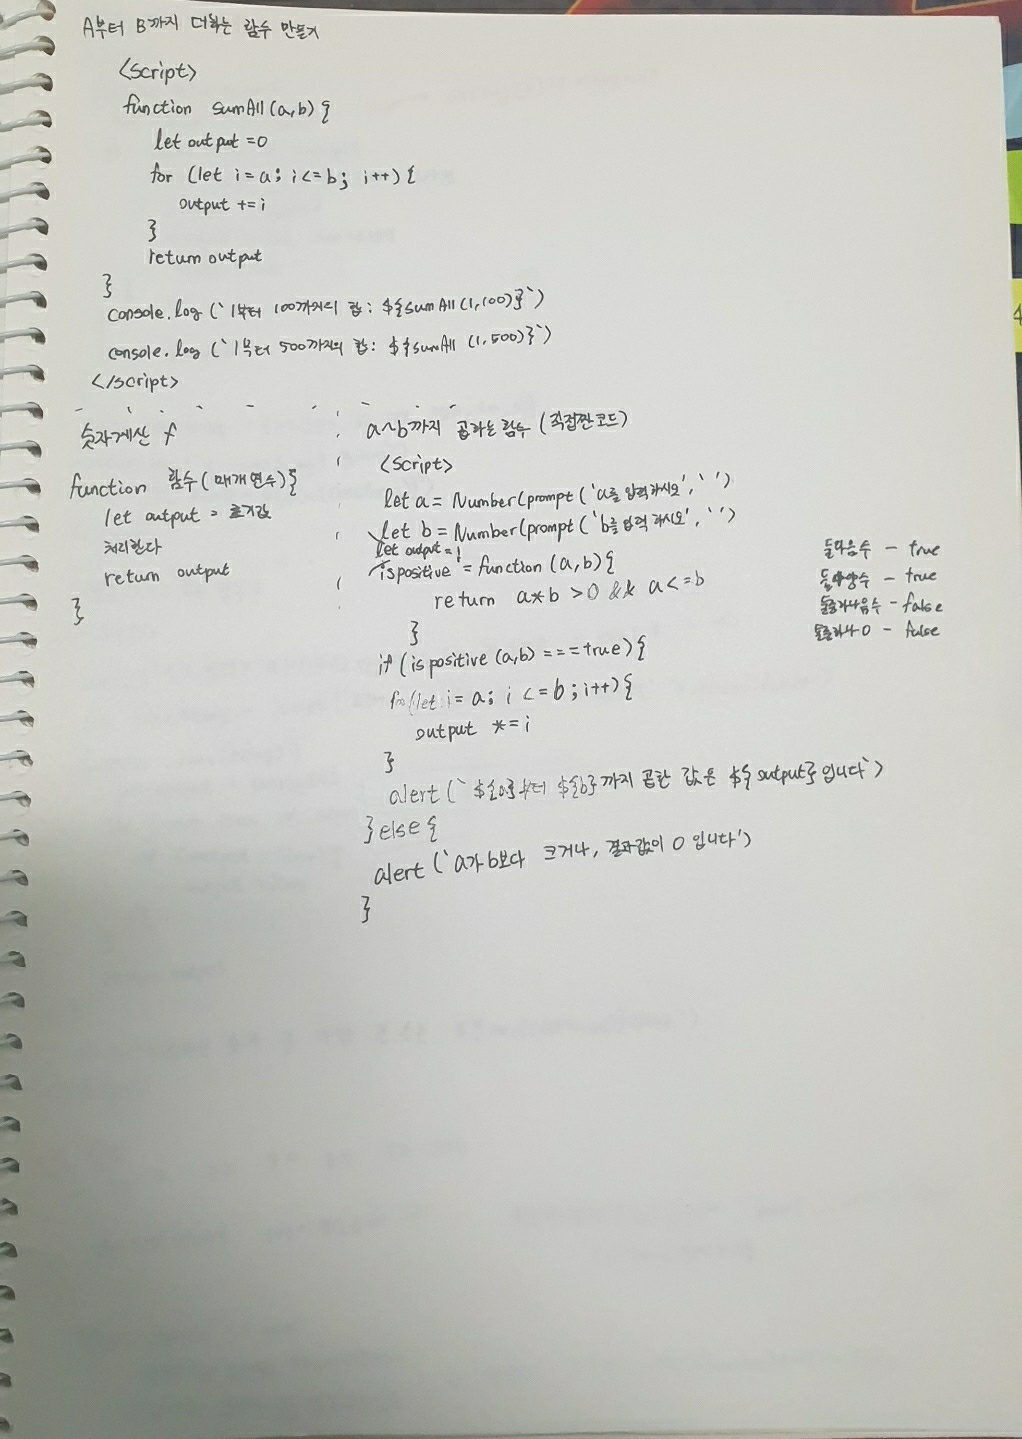 A부터 B까지 더하는 함수 만들기
<script>
function sumAll(a,b){
let output =0
for (let i=a; i<=b; i++){
output +=i
}
return output
}
console.log(`1부터 100까지의 합: ${sumAll(1,100)}`)
console.log(`1부터 500까지의 합: ${sumAll (1,500)}`)
</script>
숫자계산 f
function 함수(매개변수){
let output = 초기값
처리한다
return output
}
a~b까지 곱하는 함수 (직접짠코드)
<script>
let a = Number(prompt('a를 입력하시오','')
let b = Number(prompt('b를 입력하시오','')
let output = 1
ispositive = function (a,b){
return a*b >0 && a<=b
}
if (ispositive (a,b) === true){
for(let i= a; i <= b ; i++){
output *= i
}
alert(`${a}부터 ${b}까지 곱한 값은 ${output}입니다`)
}else{
alert('a가 b보다 크거나, 결과값이 0 입니다')
}
둘다음수 - true
둘다양수 - true
둘중하나음수 - false
둘중하나 0 - false
4